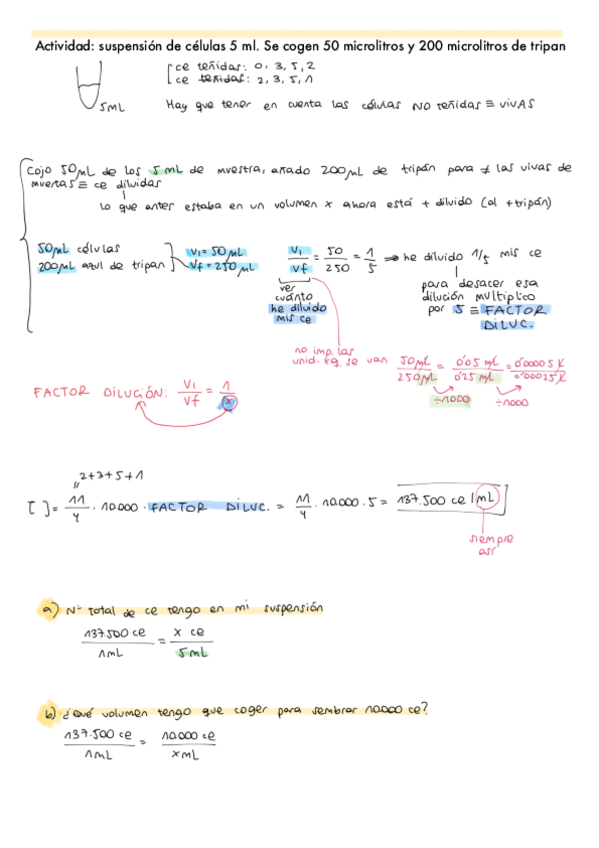 Actividad: suspensión de células 5 ml. Se cogen 50 microlitros y 200 microlitros de tripan
ce teñidas: 0, 3, 5, 2
ce teñidas: 2, 3, 5, 1
5mL
Hay que tener en cuenta las células NO teñidas ≡ vivas
Cojo 50μL de los 5mL de muestra, añado 200μL de tripán para ≠ las vivas de
muertas ≡ ce diluidas
lo que antes estaba en un volumen x ahora está + diluido (al +tripán)
50μL células
200μL azul de tripan
Vi = 50μL
Vf = 250μL
Vi/Vf = 50/250 = 1/5 → he diluido 1/5 mis ce
ver
cuánto
he diluido
mis ce
para desacer esa
dilución multiplico
por 5 ≡ FACTOR
DILUC.
no imp. las
unid. se van
50μL/250μL = 0'05 mL/0'25 mL = 0'00005 L/0'00025 L
÷1000
÷1000
FACTOR DILUCIÓN: Vi/Vf = 1/x
2+3+5+1
[ ] = 11/4 · 10.000 · FACTOR DILUC. = 11/4 · 10.000 · 5 = 137.500 ce/mL
siempre
así
a) Nº total de ce tengo en mi suspensión
137.500 ce/1mL = x ce/5mL
b) ¿Qué volumen tengo que coger para sembrar 10.000 ce?
137.500 ce/1mL = 10.000 ce/x mL